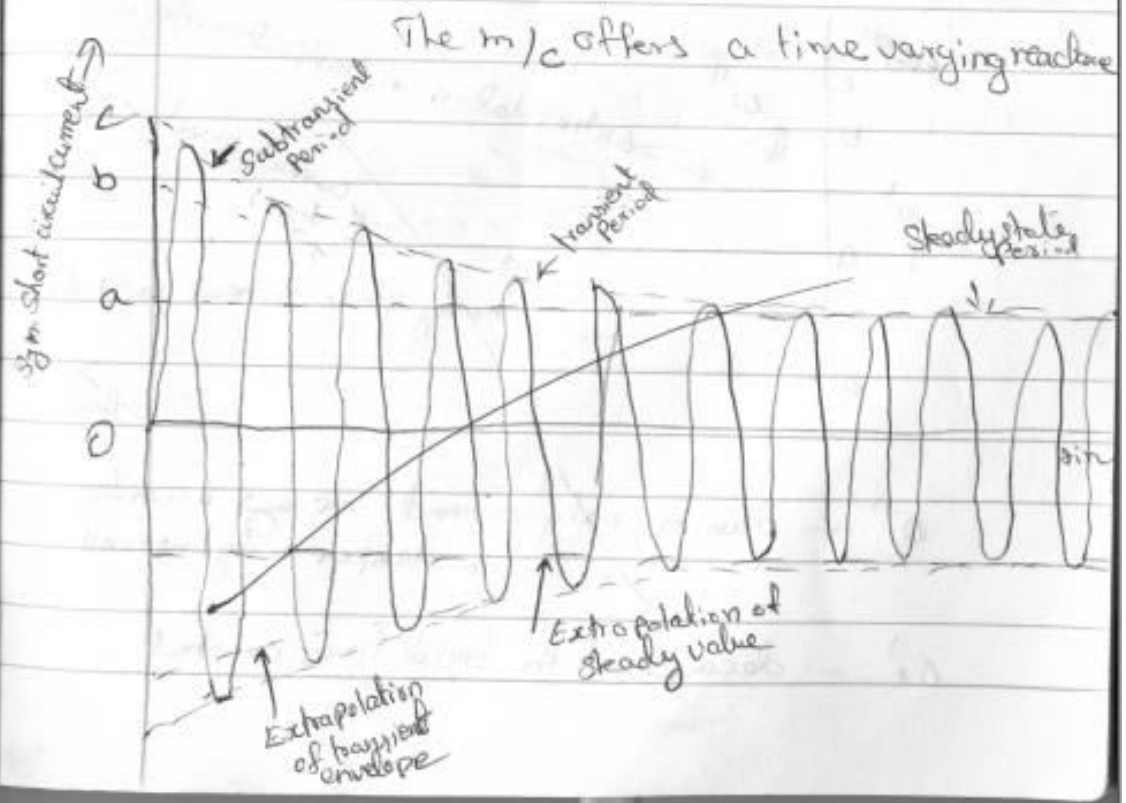 The m/c offers a time varying reactance
sym short circuit current
c
b
a
0
Subtransient
period
transient
period
Steady state
period
Extrapolation
of transient
envelope
Extrapolation of
steady value